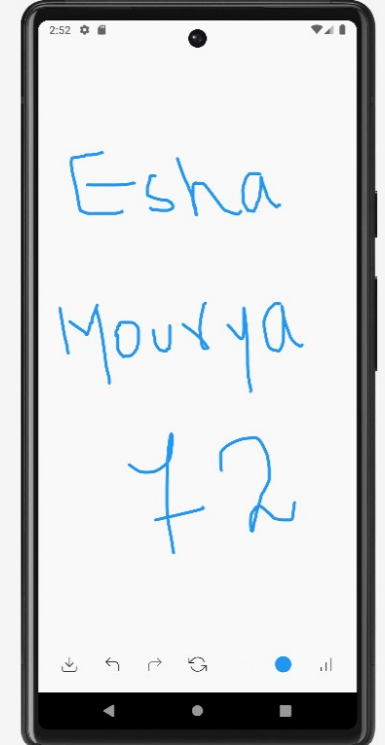 2:52
Esha
Mourya
72